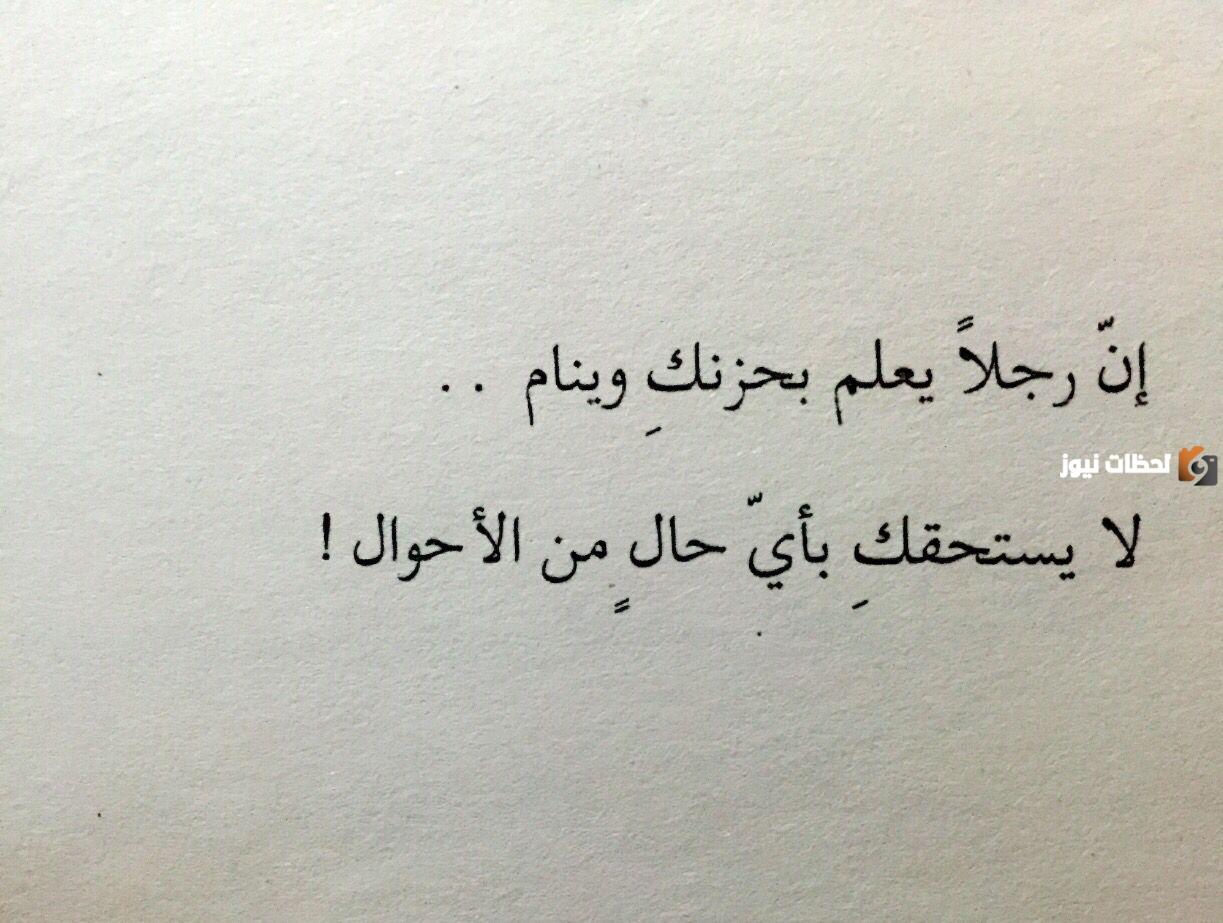 إنّ رجلاً يعلم بحزنكِ وينام . .
لحظات نيوز
لا يستحقكِ بأيّ حالٍ من الأحوال !